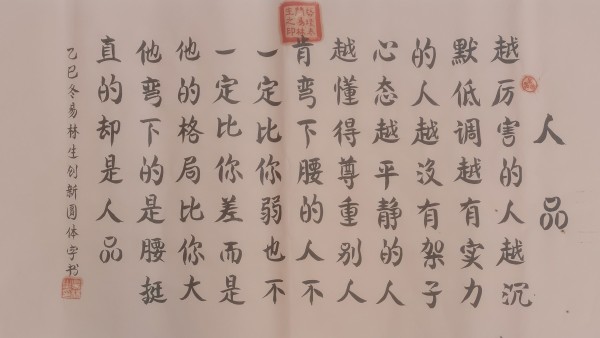 人品
越厉害的人越沉
默低调越有实力
的人越没有架子
心态越平静的人
越懂得尊重别人
肯弯下腰的人不
一定比你弱也不
一定比你差而是
他的格局比你大
他弯下的是腰挺
直的却是人品
乙巳冬易林生创新圆体字书